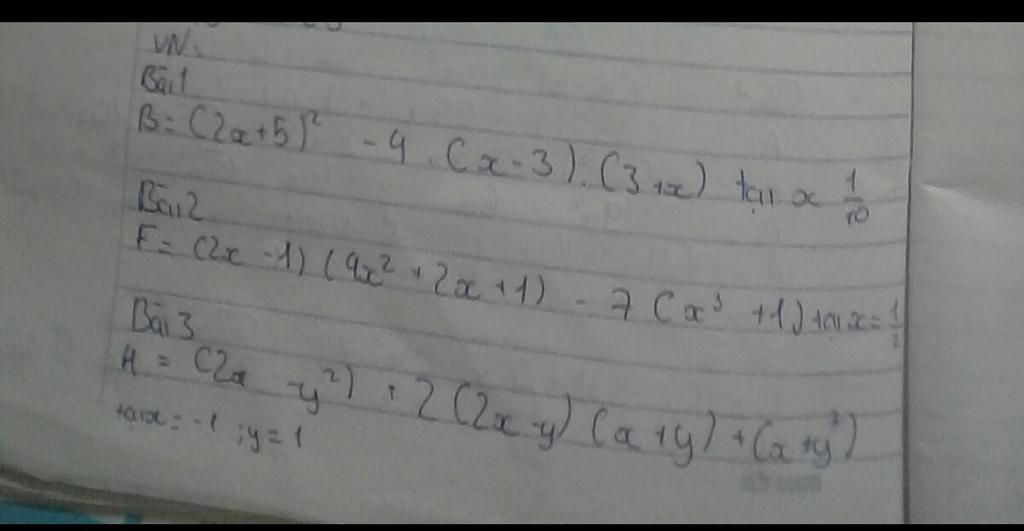 VN.
Bài 1
B = (2x+5)² - 4 . (x-3).(3+x) tại x 1/10
Bài 2
F = (2x - 1) (4x² + 2x + 1) - 7 (x³ + 1) tại x = 1/2
Bài 3
H = (2x - y²) + 2 (2x-y) (x+y) + (x+y²)
tại x = -1 ; y = 1